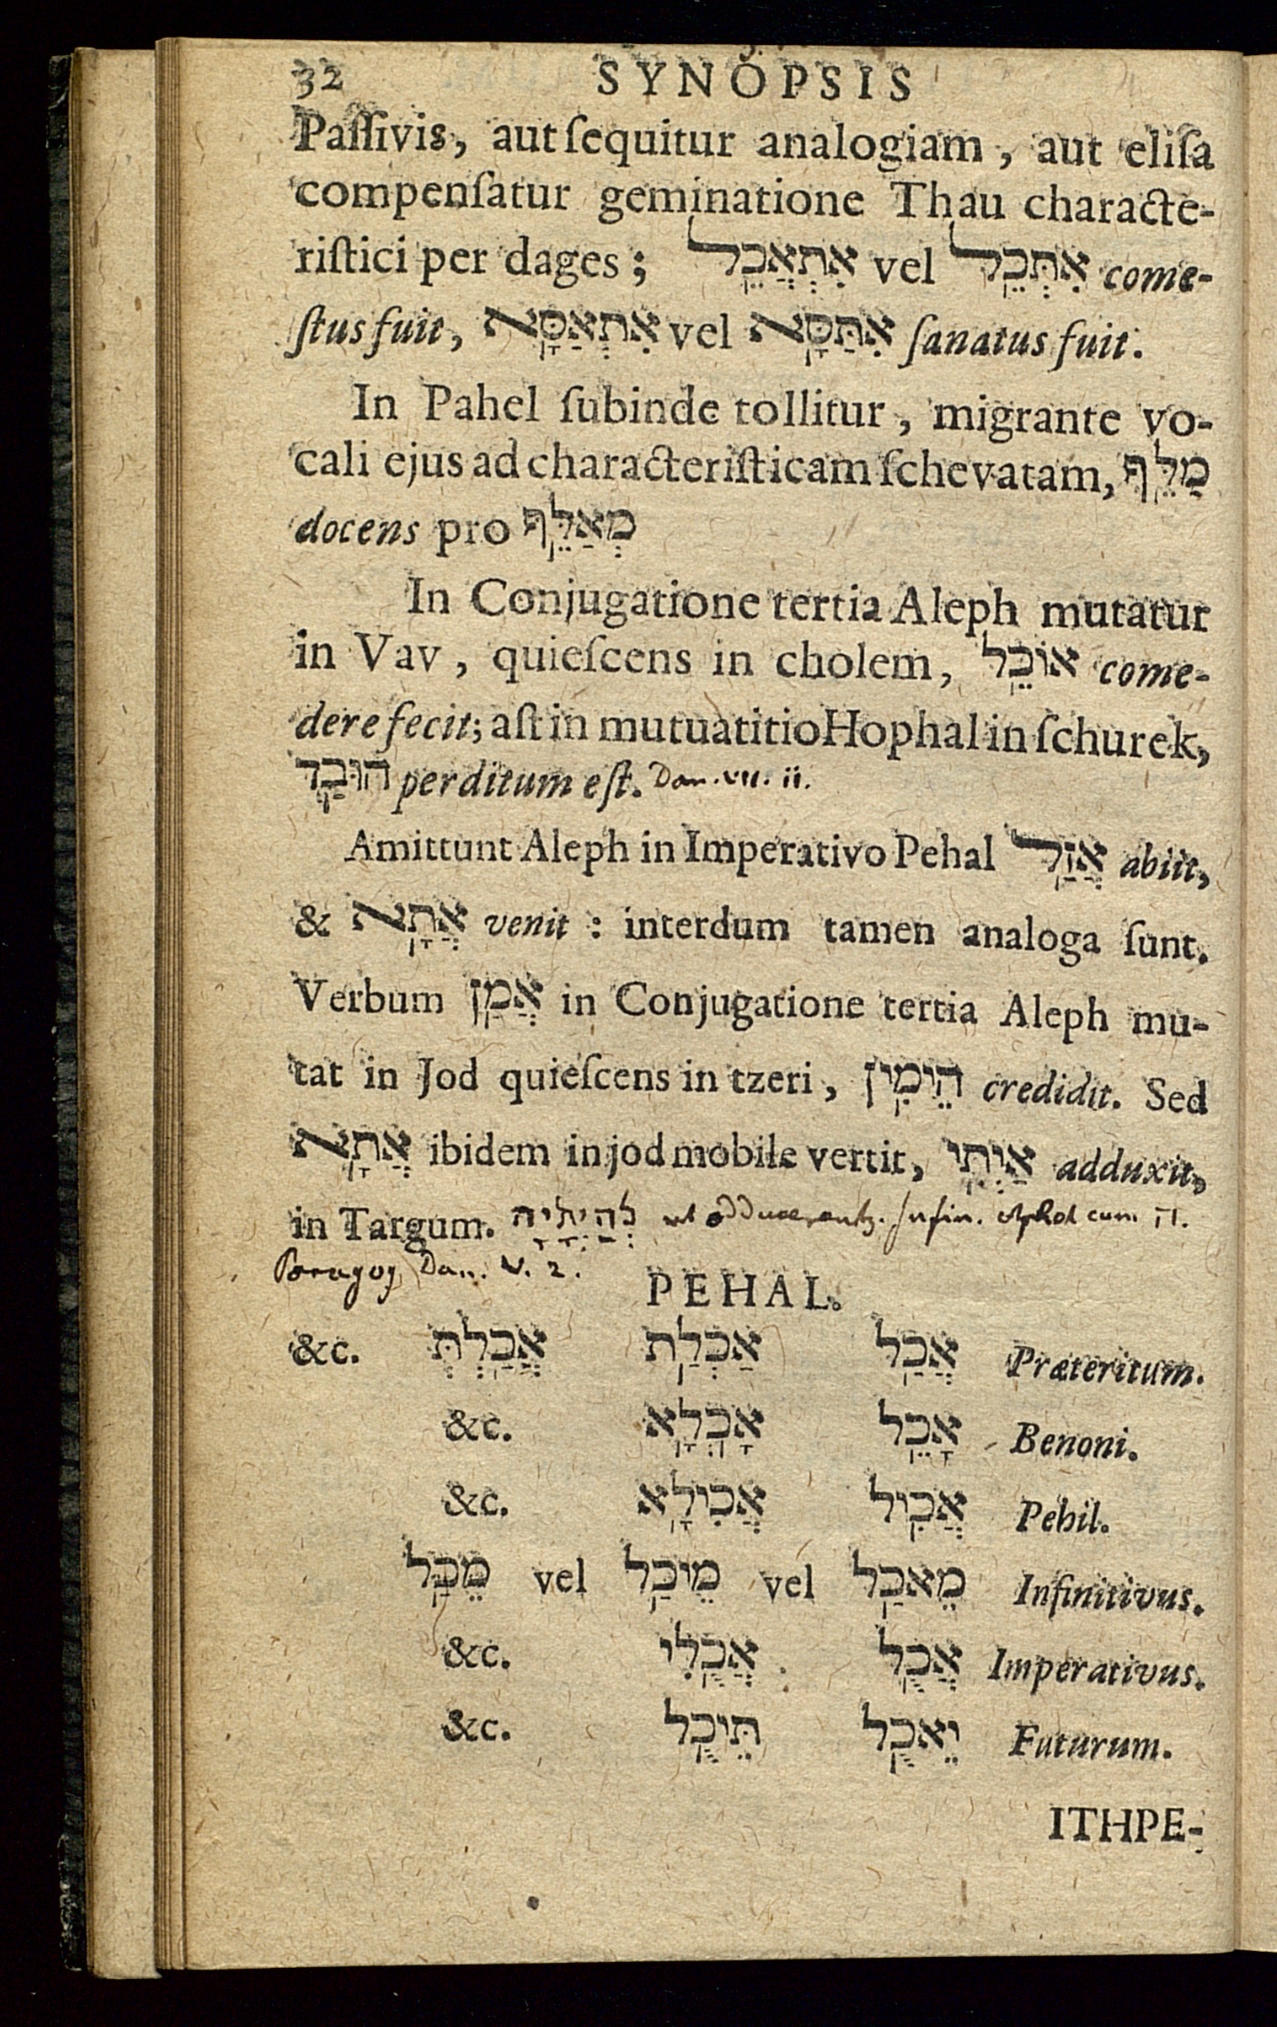 32 SYNOPSIS
Paſſivis, aut ſequitur analogiam, aut eliſa
compenſatur geminatione Thau characte-
riſtici per dages; אִתְאֲכֵל vel אִתְּכֵל come-
ſtus fuit, אִתְאַסָּא vel אִתַּסָּא ſanatus fuit.
In Pahel ſubinde tollitur, migrante vo-
cali ejus ad characteriſticam ſchevatam, מַלֵּף
docens pro מְאַלֵּף
In Conjugatione tertia Aleph mutatur
in Vav, quieſcens in cholem, אוֹכֵל come-
dere fecit; aſt in mutuatitio Hophal in ſchurek,
הוּבַד perditum eſt. Dan. VII. ii.
Amittunt Aleph in Imperativo Pehal אֲזַל abiit,
& אֲתָא venit : interdum tamen analoga ſunt.
Verbum אֲמַן in Conjugatione tertia Aleph mu-
tat in Jod quieſcens in tzeri, הֵימִין credidit. Sed
אֲתָא ibidem in jod mobile vertit, אַיְתִי adduxit,
in Targum. לְהַיְתָיָה ut adducerentur. Infin. Aphel cum ה.
Paragog. Dan. V. 2.
PEHAL.
Præteritum. אֲכַל אַכְלַת אֲכַלְתְּ &c.
Benoni. אָכֵל אָכְלָא &c.
Pehil. אֲכִיל אֲכִילָא &c.
Infinitivus. מֵאכַל vel מֵיכַל vel מֵכַל
Imperativus. אֲכֻל אֲכֻלִי &c.
Futurum. יֵאכֻל תֵּיכֻל &c.
ITHPE-